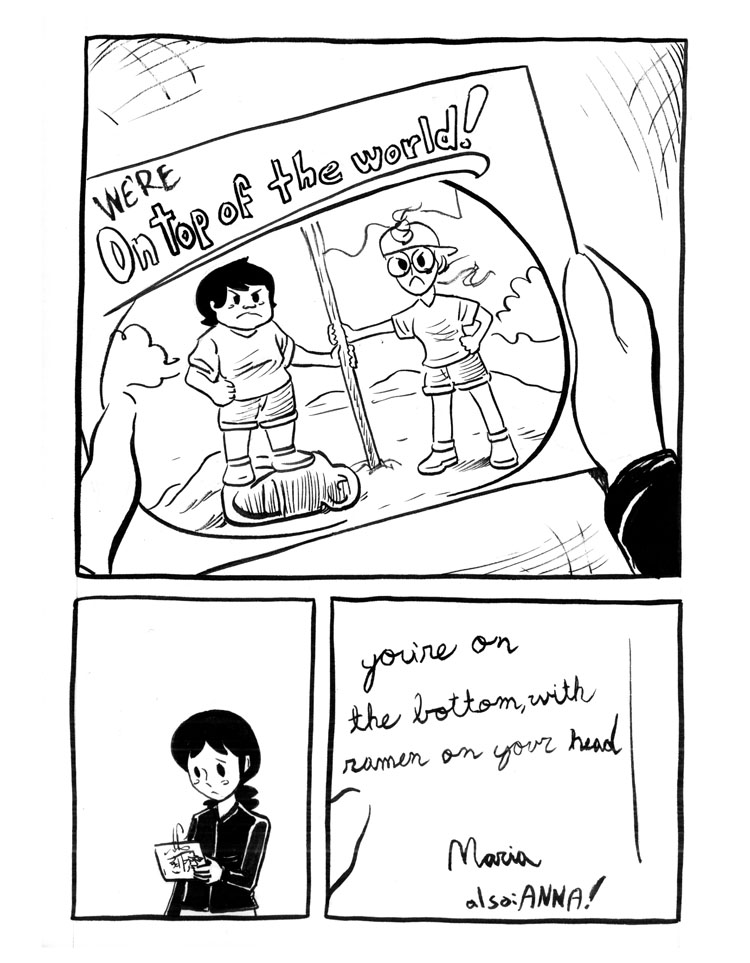 WE'RE
On top of the world!
you're on
the bottom, with
ramen on your head
Maria
also: ANNA!